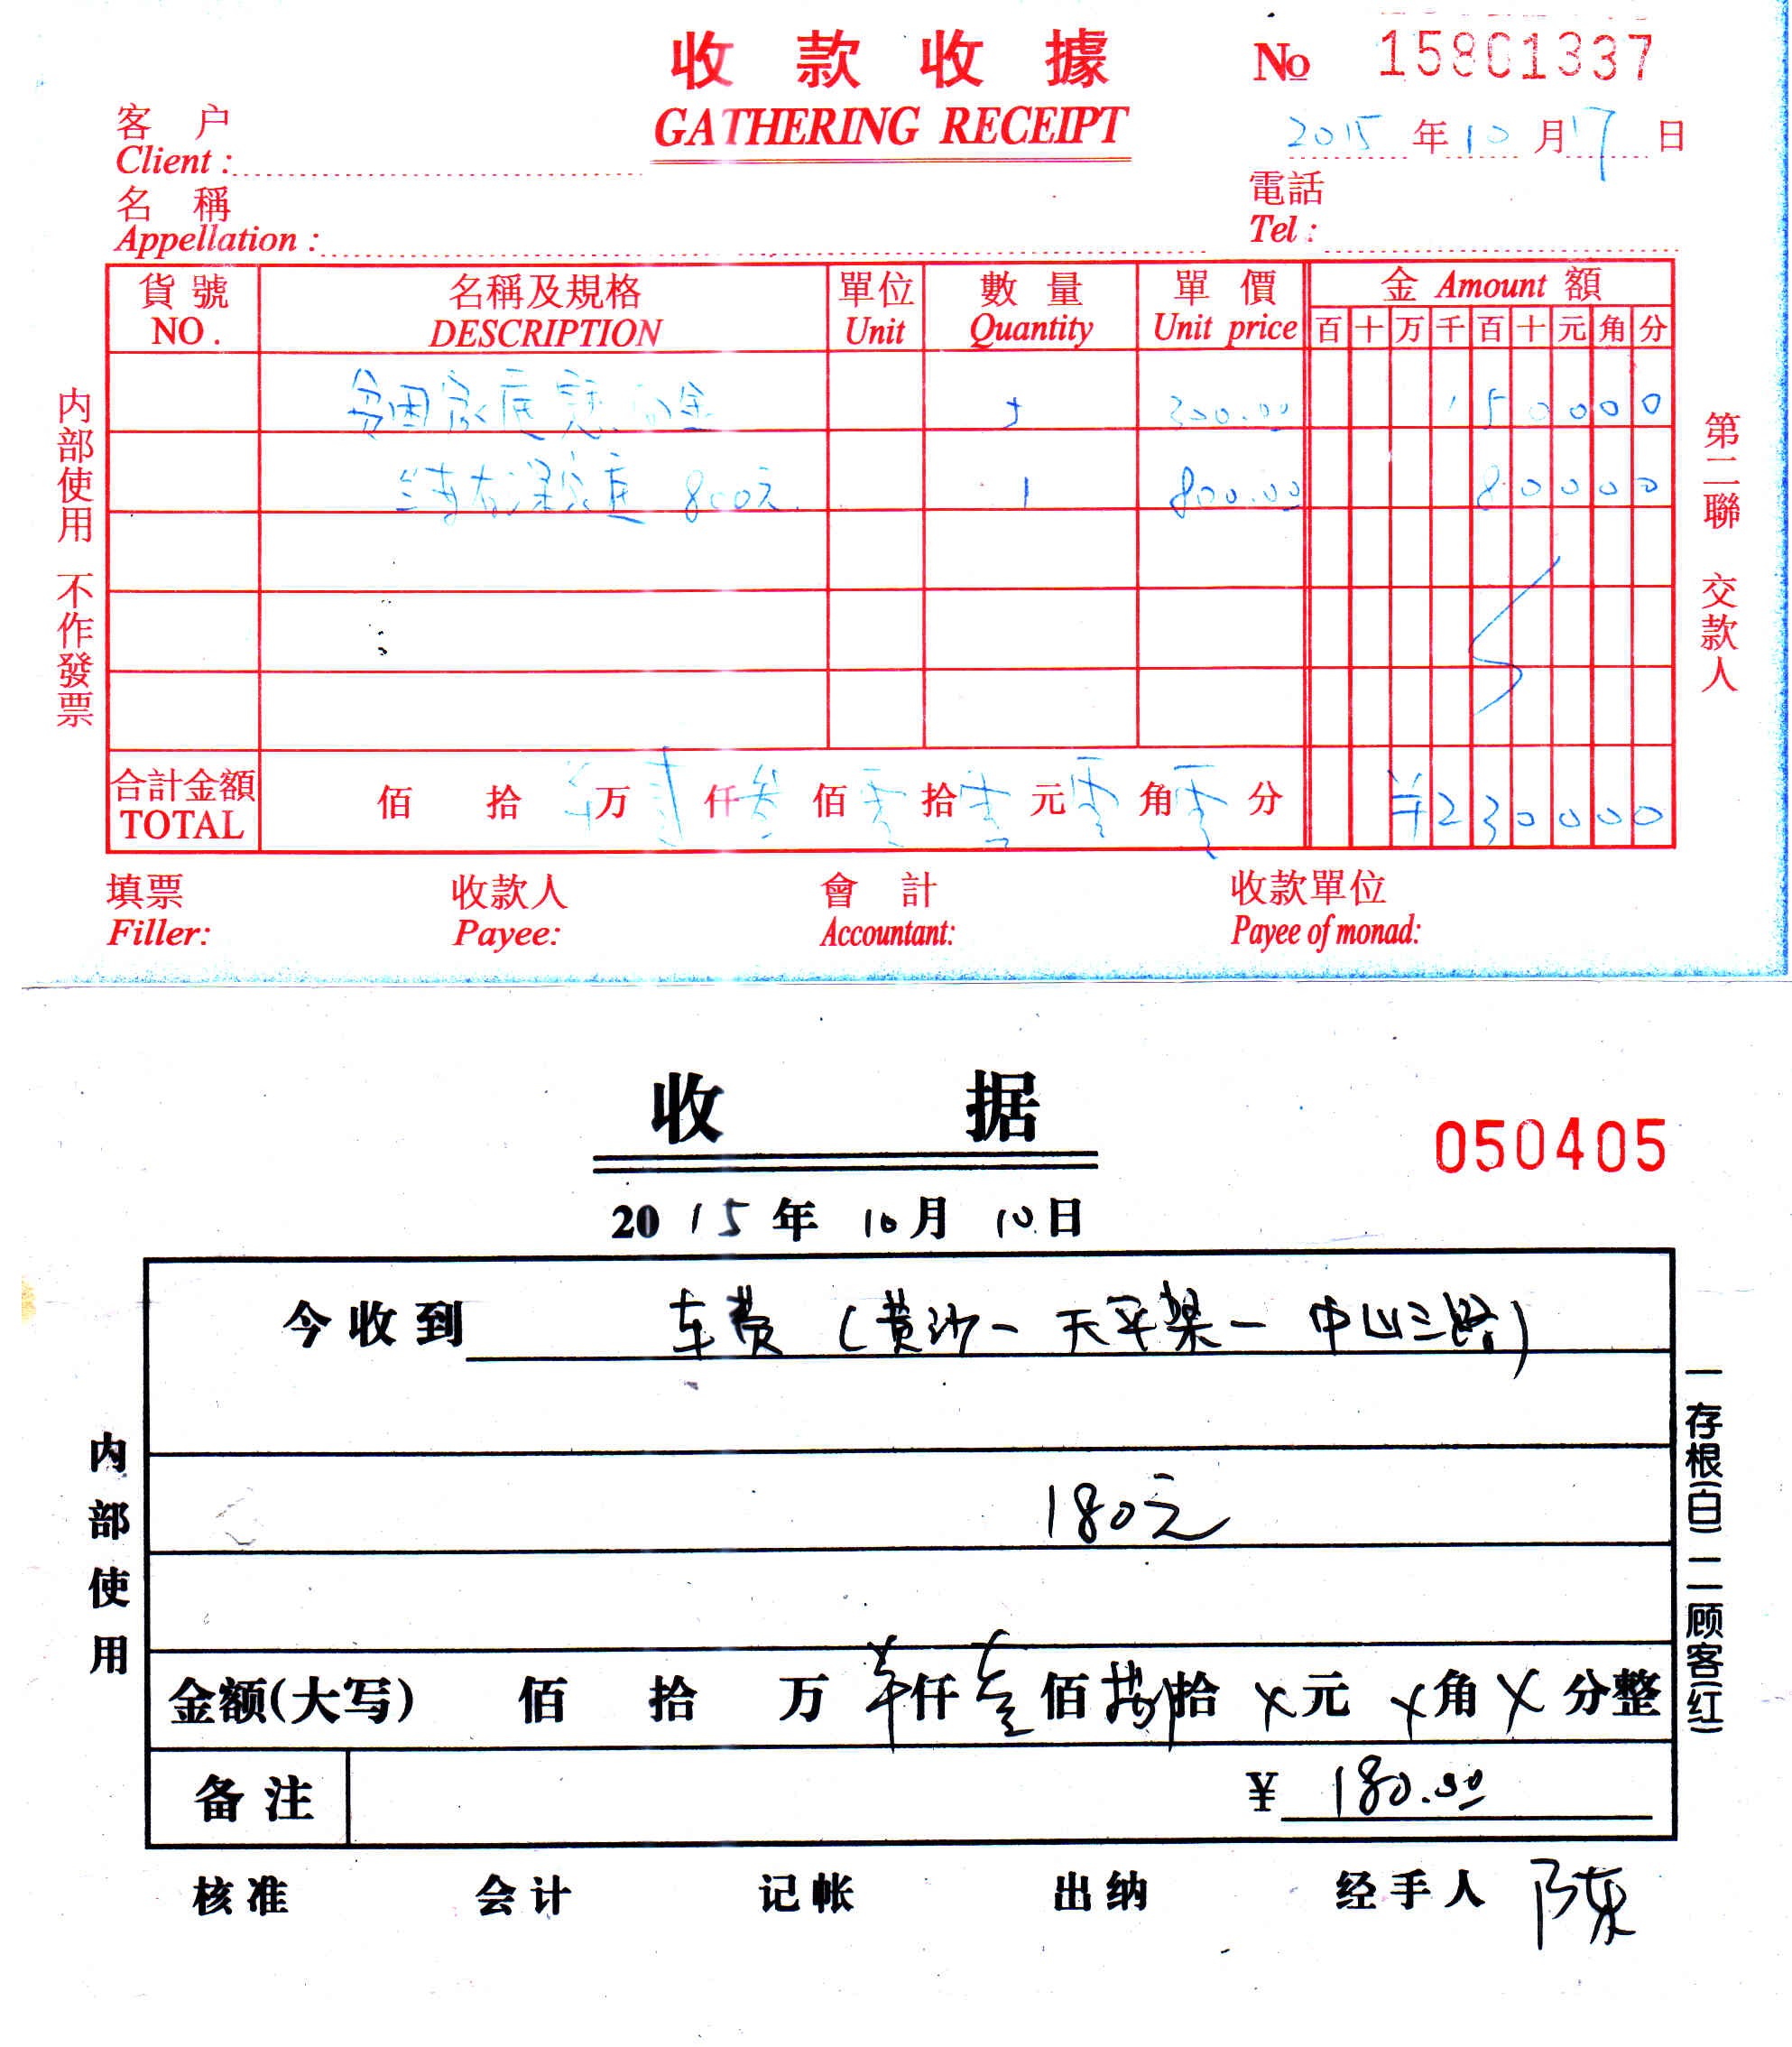 收款收據 No 15801337
GATHERING RECEIPT
2015年10月17日
客户
Client :
名稱
Appellation :
電話
Tel :
貨號 名稱及規格 單位 數量 單價 金 Amount 額
NO. DESCRIPTION Unit Quantity Unit price 百十万千百十元角分
贫困家庭 金 5 300.00 150000
家庭 800元 1 800.00 80000
合計金額 佰 拾 万 贰仟叁佰零拾零元零角零分 ¥230000
TOTAL
填票 收款人 會計 收款單位
Filler: Payee: Accountant: Payee of monad:
内部使用 不作發票
第二聯 交款人
收据
050405
2015年10月10日
今收到 车费(黄沙一天平架一中山三路)
180元
金额(大写) 佰 拾 万 仟壹佰捌拾X元X角X分整
备注 ¥ 180.00
核准 会计 记帐 出纳 经手人 陈
内部使用
一存根(白)二顾客(红)